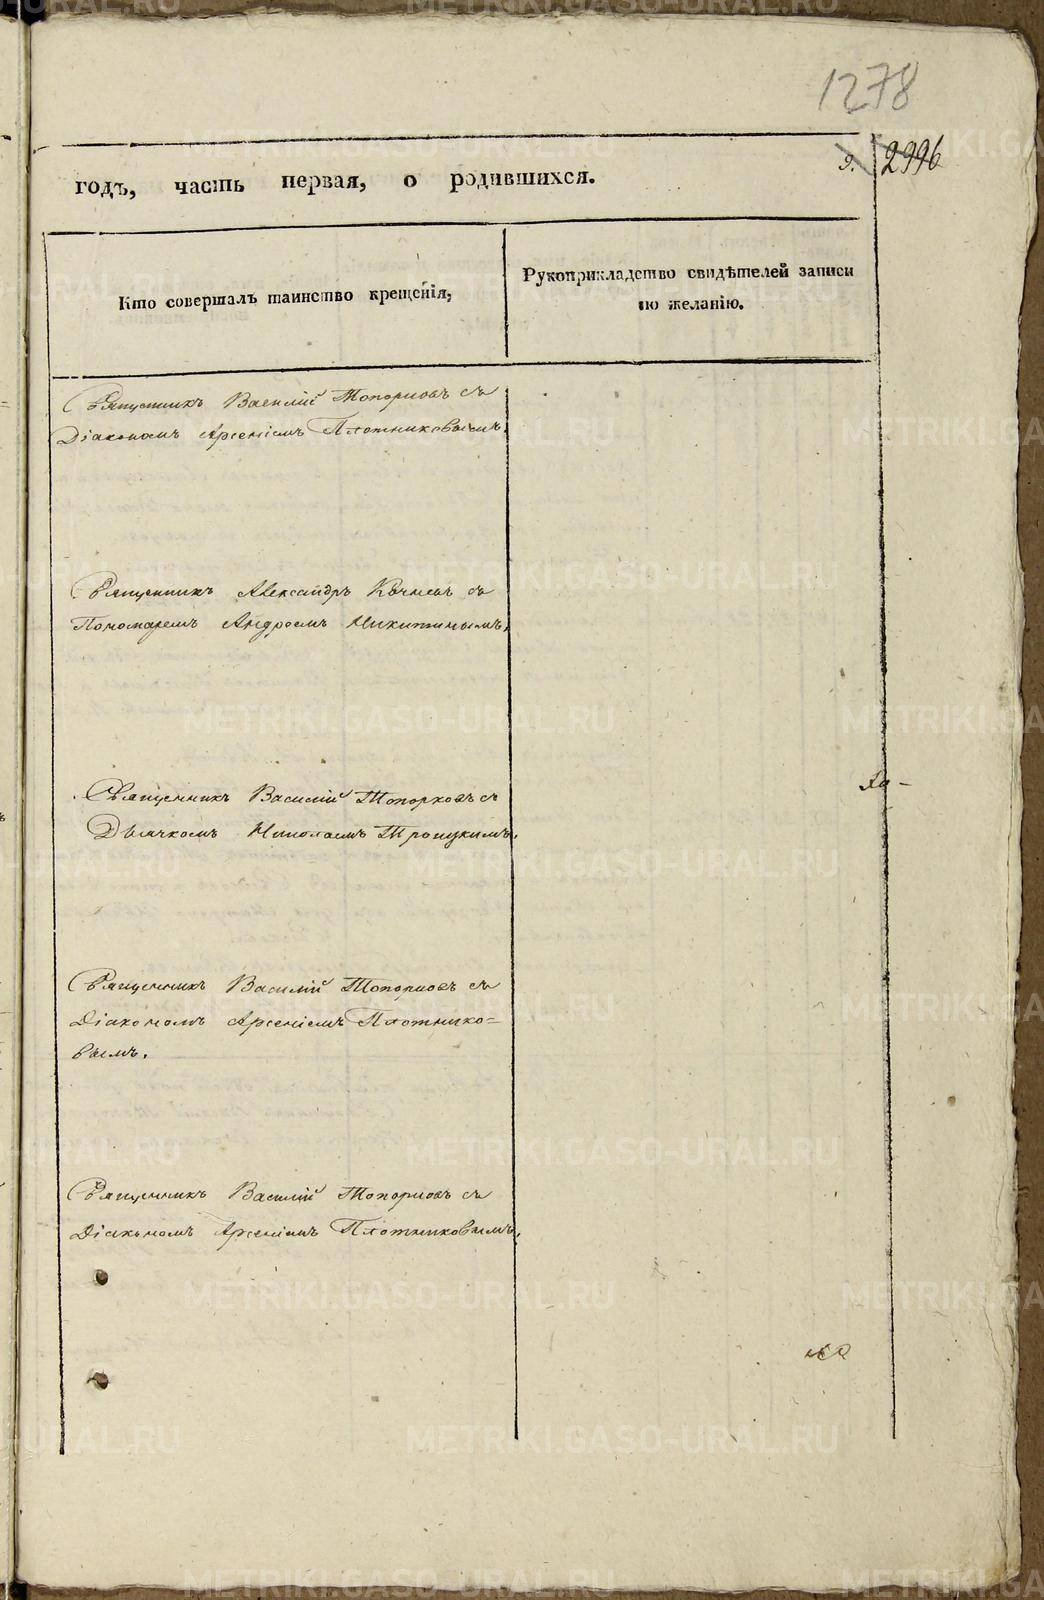 1278
9. 2996
годъ, часть первая, о родившихся.
Кто совершалъ таинство крещенія,
Рукоприкладство свидѣтелей записи
по желанію.
Священникъ Василій Топорковъ съ
Діакономъ Арсеніемъ Плотниковымъ.
Священникъ Александръ съ
Пономаремъ Андреемъ Никитинымъ.
Священникъ Василій Топорковъ съ
Дьячкомъ Николаемъ Троицкимъ.
Священникъ Василій Топорковъ съ
Діакономъ Арсеніемъ Плотнико=
вымъ.
Священникъ Василій Топорковъ съ
Діакономъ Арсеніемъ Плотниковымъ.
METRIKI.GASO-URAL.RU